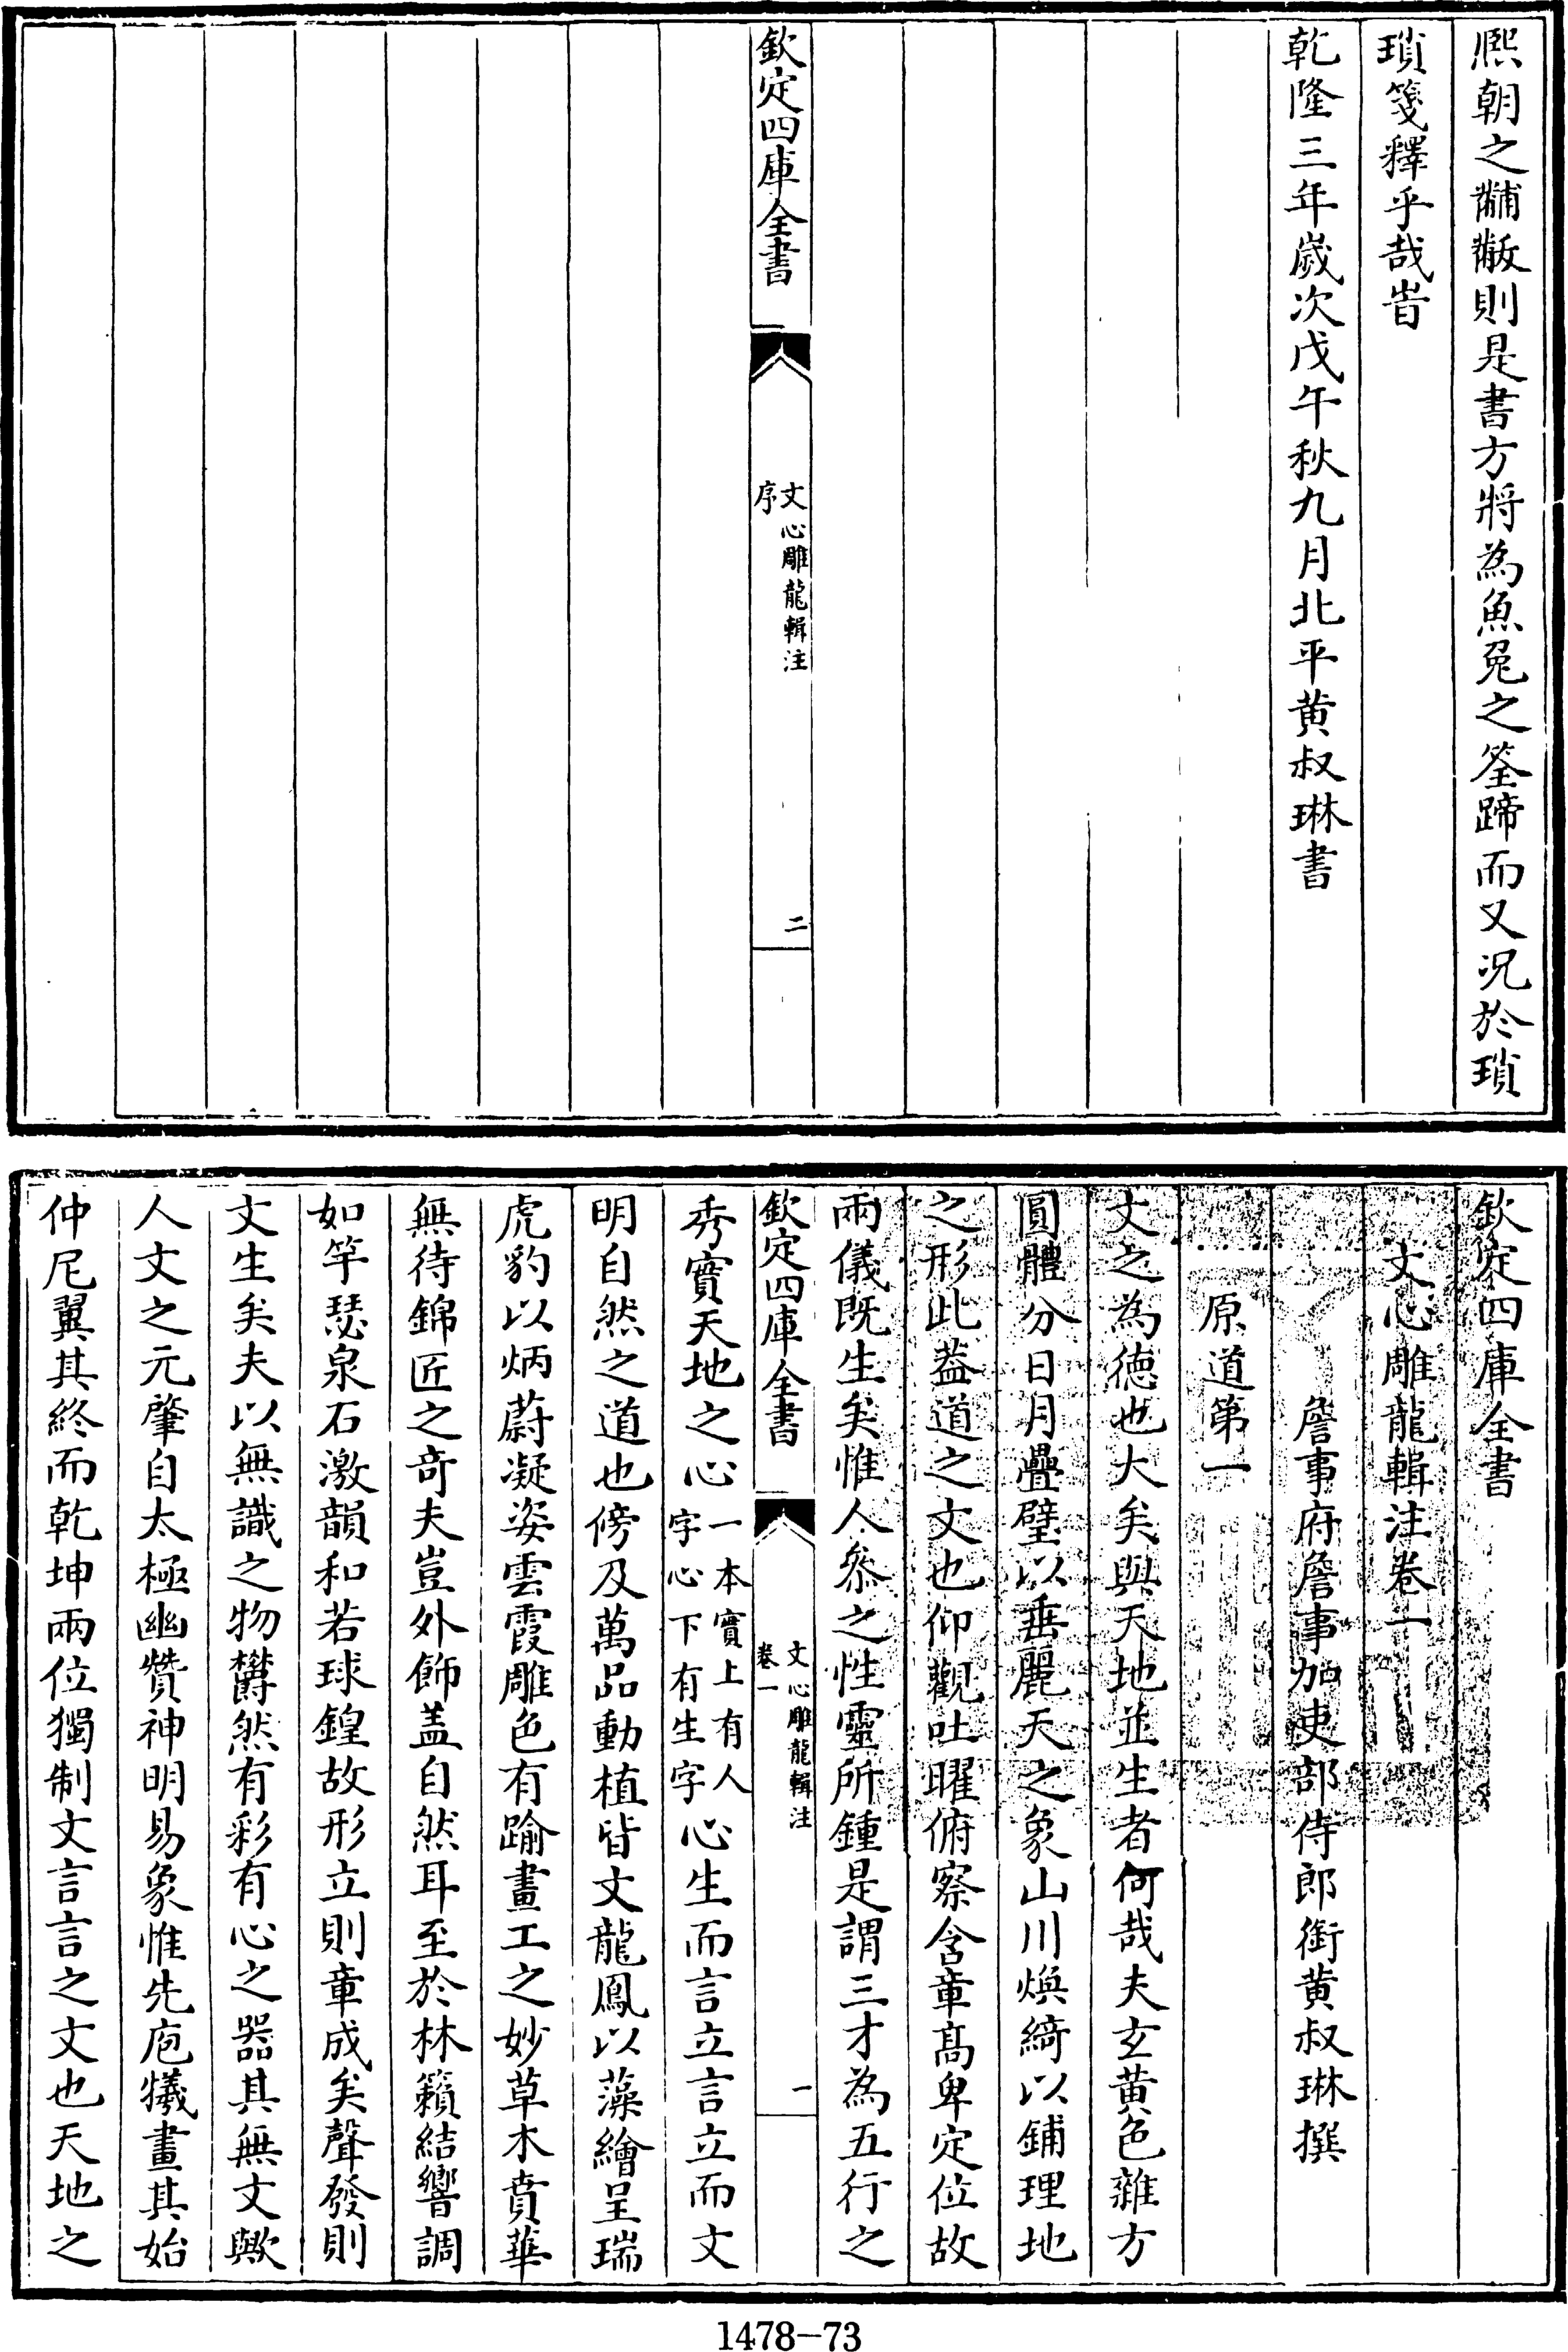 熈朝之黼黻則是書方將為魚兔之筌蹄而又况於瑣
瑣箋釋乎哉旹
乾隆三年歲次戊午秋九月北平黄叔琳書
欽定四庫全書
文心雕龍輯注
序
二
欽定四庫全書
文心雕龍輯注卷一
詹事府詹事加吏部侍郎銜黄叔琳撰
原道第一
文之為德也大矣與天地並生者何哉夫玄黄色雜方
圓體分日月疊璧以垂麗天之象山川煥綺以鋪理地
之形此葢道之文也仰觀吐曜俯察含章髙卑定位故
兩儀既生矣惟人叅之性靈所鍾是謂三才為五行之
欽定四庫全書
文心雕龍輯注
卷一
一
秀實天地之心一本實上有人字心下有生字心生而言立言立而文
明自然之道也傍及萬品動植皆文龍鳳以藻繪呈瑞
虎豹以炳蔚凝姿雲霞雕色有踰畫工之妙草木賁華
無待錦匠之奇夫豈外飾盖自然耳至於林籟結響調
如竽瑟泉石激韻和若球鍠故形立則章成矣聲發則
文生矣夫以無識之物欝然有彩有心之器其無文歟
人文之元肇自太極幽贊神明易象惟先庖犧畫其始
仲尼翼其終而乾坤兩位獨制文言言之文也天地之
1478-73